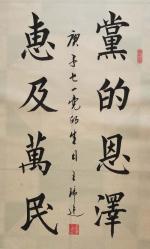 黨的恩澤
惠及萬民
庚子七一党的生日